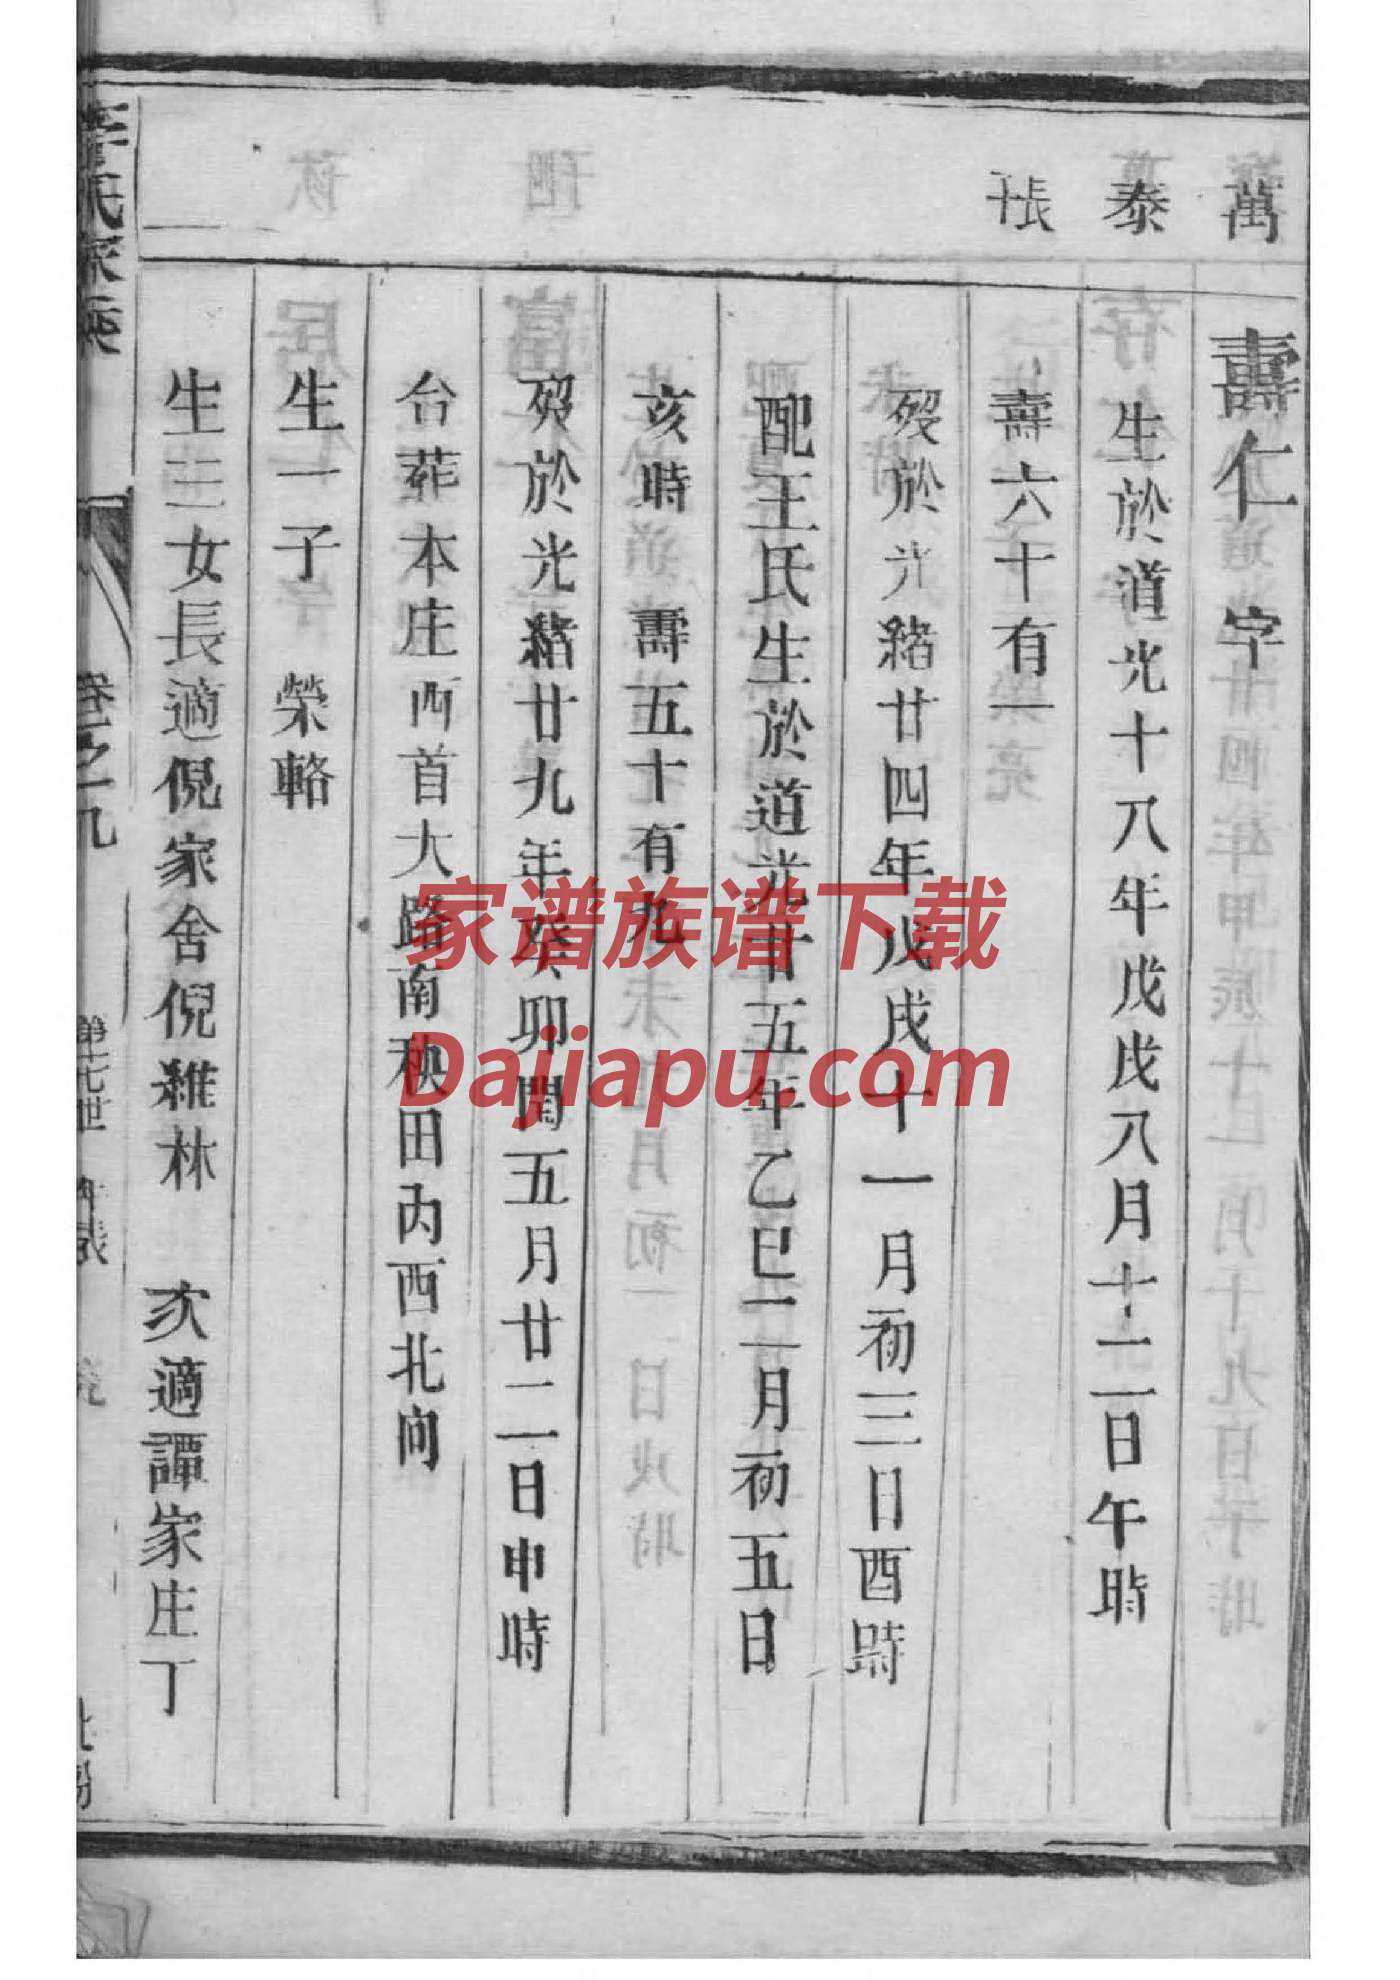 萬
泰
張
壽仁 字
生於道光十八年戊戌八月十二日午時
壽六十有一
殁於光緒廿四年戊戌十一月初三日酉時
配王氏生於道光廿五年乙巳二月初五日
亥時 壽五十有九
殁於光緒廿九年癸卯閏五月廿二日申時
合葬本庄西首大路南秧田內西北向
生一子 榮輅
生三女長適倪家舍倪雜林 次適譚家庄丁
氏
卷之九
第七世
家谱族谱下载
Dajiapu.com